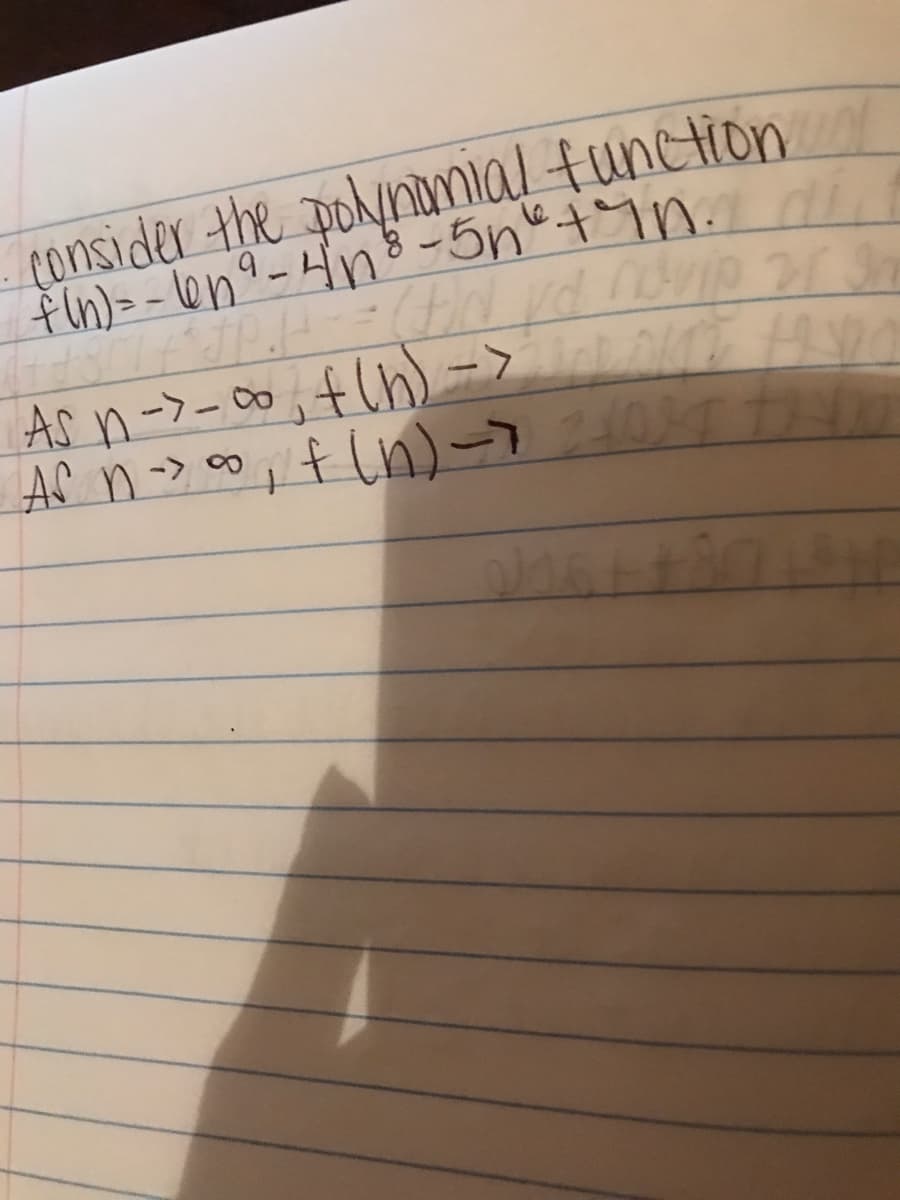 consider the polynomial function
f(n)=-6n⁹-4n⁸-5n⁶+9n.
As n->-∞, f(n)->
As n->∞, f(n)->